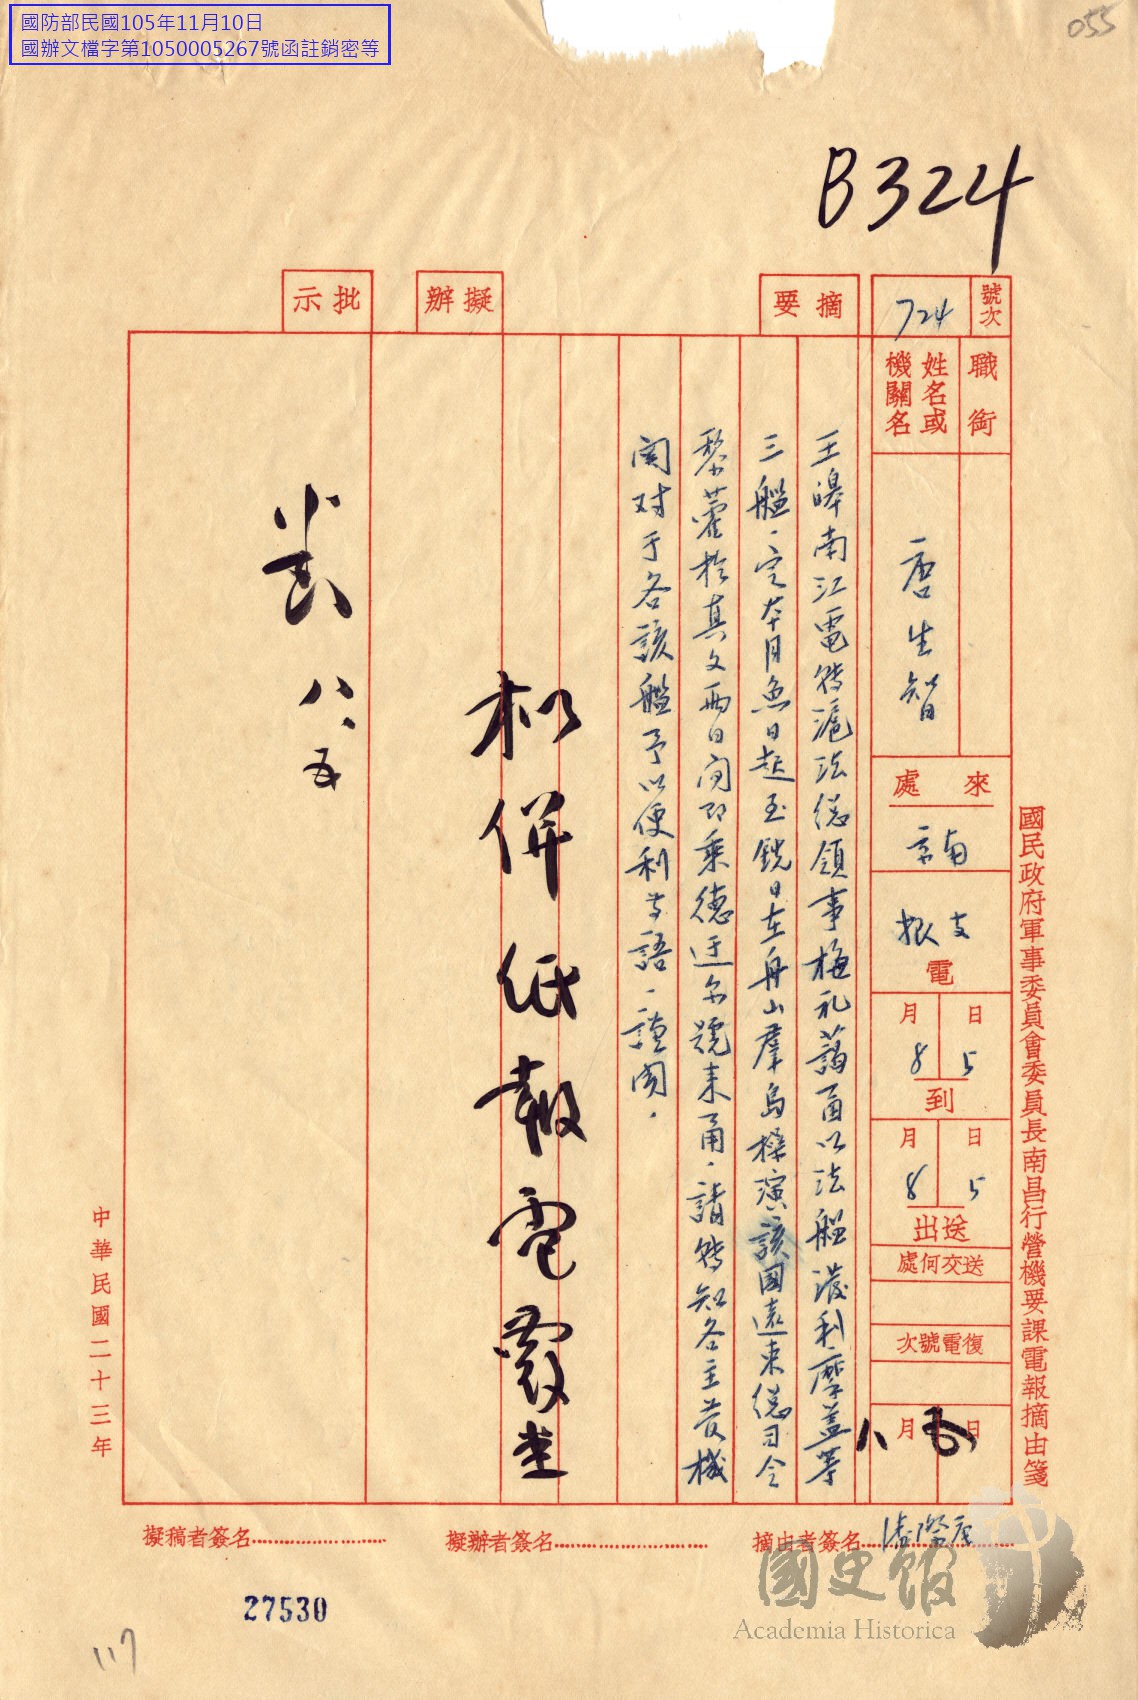 國防部民國105年11月10日
國辦文檔字第1050005267號函註銷密等
055
B324
國民政府軍事委員會委員長南昌行營機要課電報摘由箋
號次
724
職銜
姓名或
機關名
唐生智
來處
南京
支
電
5日
8月
到
5日
8月
送出
送交何處
復電號次
八月五日
摘要
王 南江電轉滬法總領事梅礼藹函以法艦 利摩蓋等
三艦。定本月魚日起至銑日在舟山羣島操演該國遠東總司令
黎藿於真文兩日間即乘德 尔號来甬。請轉知各主管機
関对于各該艦予以便利等語。謹闻。
擬辦
擬併低報電 
批示
八、五
摘由者簽名
擬辦者簽名
擬稿者簽名
中華民國二十三年
27530
117
國史館
Academia Historica